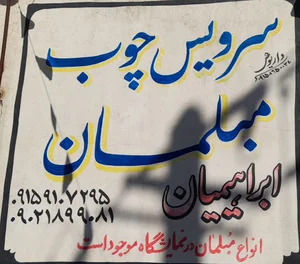 سرویس چوب
داریوش
مبلمان
ابراهیمیان
۰۹۱۵۹۱۰۷۲۹۵
۰۹۰۲۱۸۹۹۰۸۱
انواع مبلمان در نمایشگاه موجود است